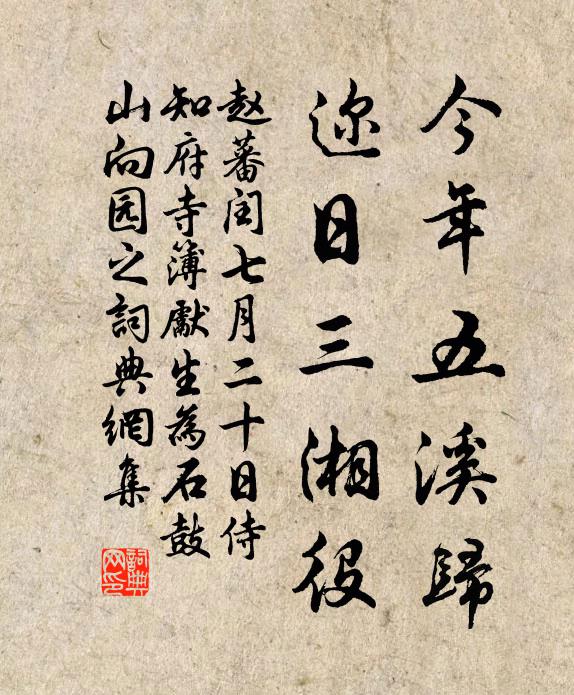 今年五溪歸
迩日三湘役
赵蕃闰七月二十日侍
知府寺簿獻生為石鼓
山向园之詞典網集
詞典网印